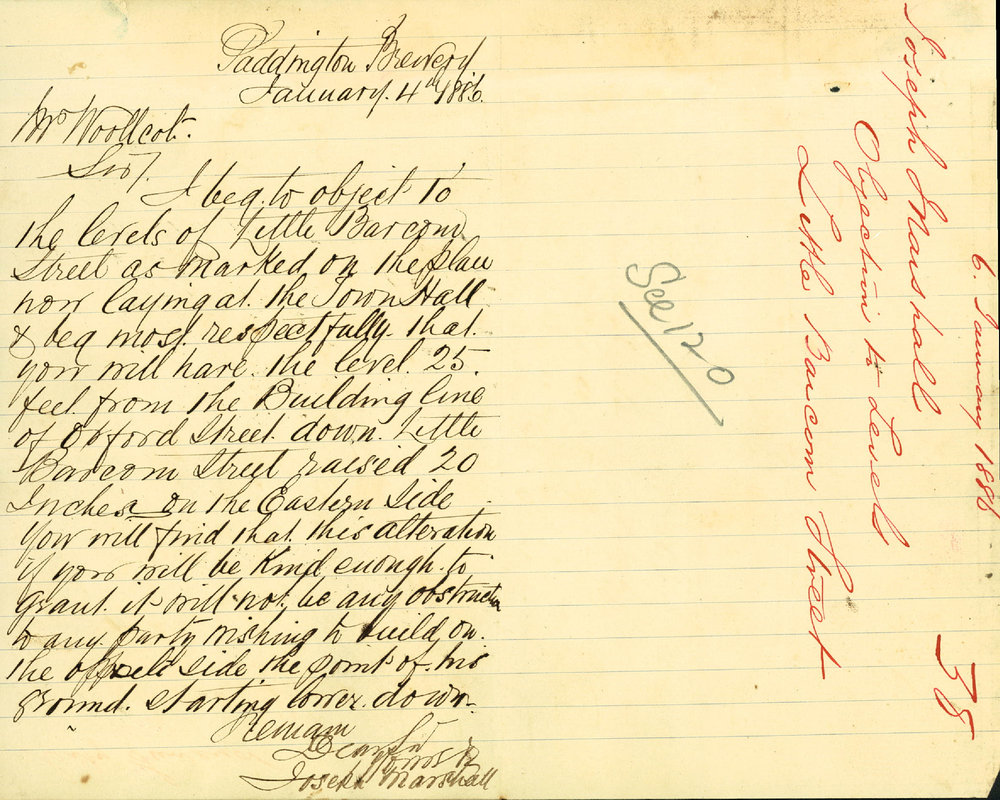 Paddington Brewery
January. 4th 1886.
Mr Woollcot.
Sir/.
I beg. to object To
the levels of Little Barcom
Street as marked on the plan
now laying at. the Town Hall
& beg most. respectfully. that.
you will have. the level. 25.
feet. from the Building line
of Oxford Street. down. Little
Barcom Street raised 20
Inches on the Eastern Side
You will find that. this alteration
if you will be Kind enough. to
grant. it will not. be any obstructn
to any. party wishing to build on.
the opposit side the point of. his
ground. starting lower. down.
I remain
Dear Sir
Yours &c
Joseph Marshall
See 120
6. January 1886
Joseph Marshall
Objection to Levels
Little Barcom Street
58